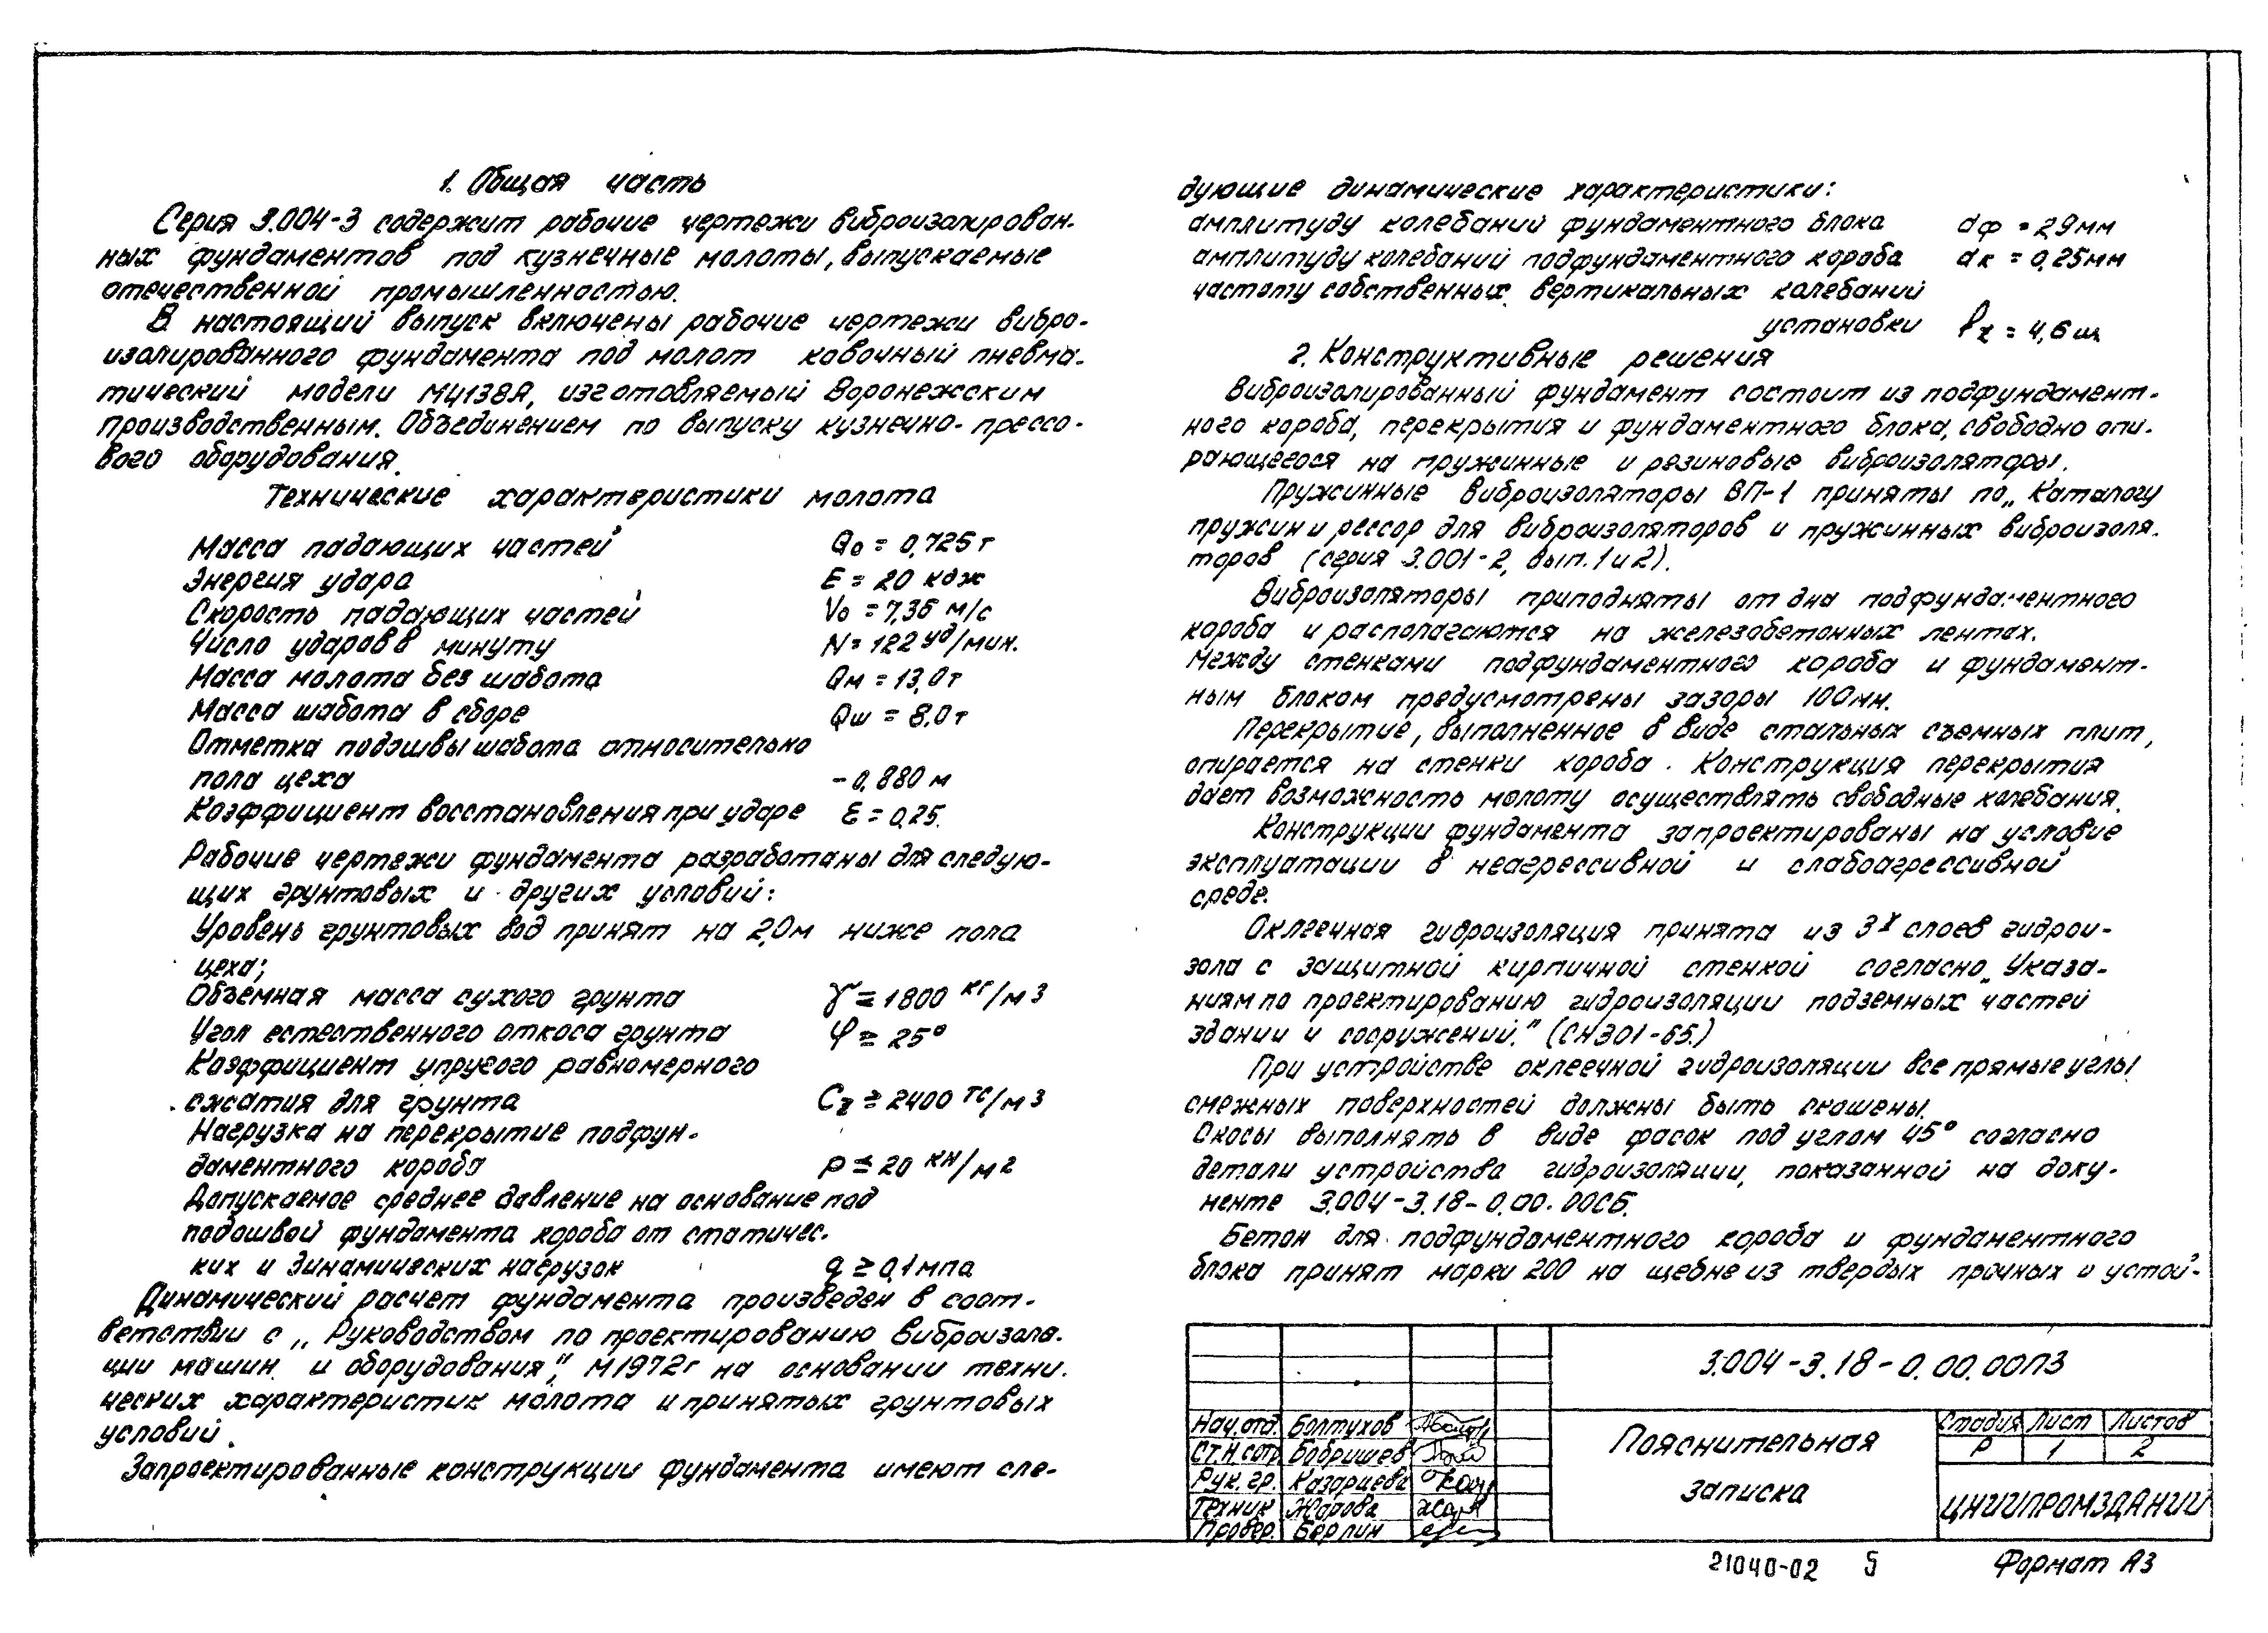 1. Общая часть
Серия 3.004-3 содержит рабочие чертежи виброизолирован-
ных фундаментов под кузнечные молоты, выпускаемые
отечественной промышленностью.
В настоящий выпуск включены рабочие чертежи вибро-
изолированного фундамента под молот ковочный пневма-
тический модели М4138А, изготовляемый Воронежским
производственным. Объединением по выпуску кузнечно-прессо-
вого оборудования.
Технические характеристики молота
Масса падающих частей Qо = 0,725 т
Энергия удара E = 20 кдж
Скорость падающих частей Vо = 7,35 м/с
Число ударов в минуту N = 122 уд/мин.
Масса молота без шабота Qм = 13,0 т
Масса шабота в сборе Qш = 8,0 т
Отметка подошвы шабота относительно
пола цеха -0,880 м
Коэффициент восстановления при ударе ε = 0,25.
Рабочие чертежи фундамента разработаны для следую-
щих грунтовых и других условий:
Уровень грунтовых вод принят на 2,0м ниже пола
цеха;
Объемная масса сухого грунта γ = 1800 кг/м3
Угол естественного откоса грунта φ ≥ 25°
Коэффициент упругого равномерного
сжатия для грунта Cz ≥ 2400 тс/м3
Нагрузка на перекрытие подфун-
даментного короба P ≤ 20 кн/м2
Допускаемое среднее давление на основание под
подошвой фундамента короба от статичес-
ких и динамических нагрузок q ≥ 0,1 мпа
Динамический расчет фундамента произведен в соот-
ветствии с „Руководством по проектированию виброизоля-
ции машин и оборудования", М 1972г на основании техни-
ческих характеристик молота и принятых грунтовых
условий.
Запроектированные конструкции фундамента имеют сле-
дующие динамические характеристики:
амплитуду колебаний фундаментного блока αф = 2,9мм
амплитуду колебаний подфундаментного короба αк = 0,25мм
частоту собственных вертикальных колебаний
установки fz = 4,6 гц
2. Конструктивные решения
Виброизолированный фундамент состоит из подфундамент-
ного короба, перекрытия и фундаментного блока, свободно опи-
рающегося на пружинные и резиновые виброизоляторы.
Пружинные виброизоляторы ВП-1 приняты по „Каталогу
пружин и рессор для виброизоляторов и пружинных виброизоля-
торов (серия 3.001-2, вып. 1 и 2).
Виброизоляторы приподняты от дна подфундаментного
короба и располагаются на железобетонных лентах.
Между стенками подфундаментного короба и фундамент-
ным блоком предусмотрены зазоры 100мм.
Перекрытие, выполненное в виде стальных съемных плит,
опирается на стенки короба. Конструкция перекрытия
дает возможность молоту осуществлять свободные колебания.
Конструкции фундамента запроектированы на условие
эксплуатации в неагрессивной и слабоагрессивной
среде.
Оклеечная гидроизоляция принята из 3х слоев гидрои-
зола с защитной кирпичной стенкой согласно „Указа-
ниям по проектированию гидроизоляции подземных частей
здании и сооружений." (СН301-65.)
При устройстве оклеечной гидроизоляции все прямые углы
смежных поверхностей должны быть скошены.
Скосы выполнять в виде фасок под углом 45° согласно
детали устройства гидроизоляции, показанной на доку-
менте 3.004-3.18-0.00.00СБ.
Бетон для подфундаментного короба и фундаментного
блока принят марки 200 на щебне из твердых прочных и устой-
3.004-3.18-0.00.00ПЗ
Нач. отд. Болтухов
Ст.н.сотр Бобришев
Рук. гр. Казарцева
Техник Жарова
Провер. Берлин
Пояснительная
записка
Стадия Лист Листов
Р 1 2
ЦНИИПРОМЗДАНИЙ
21040-02 5 Формат А3